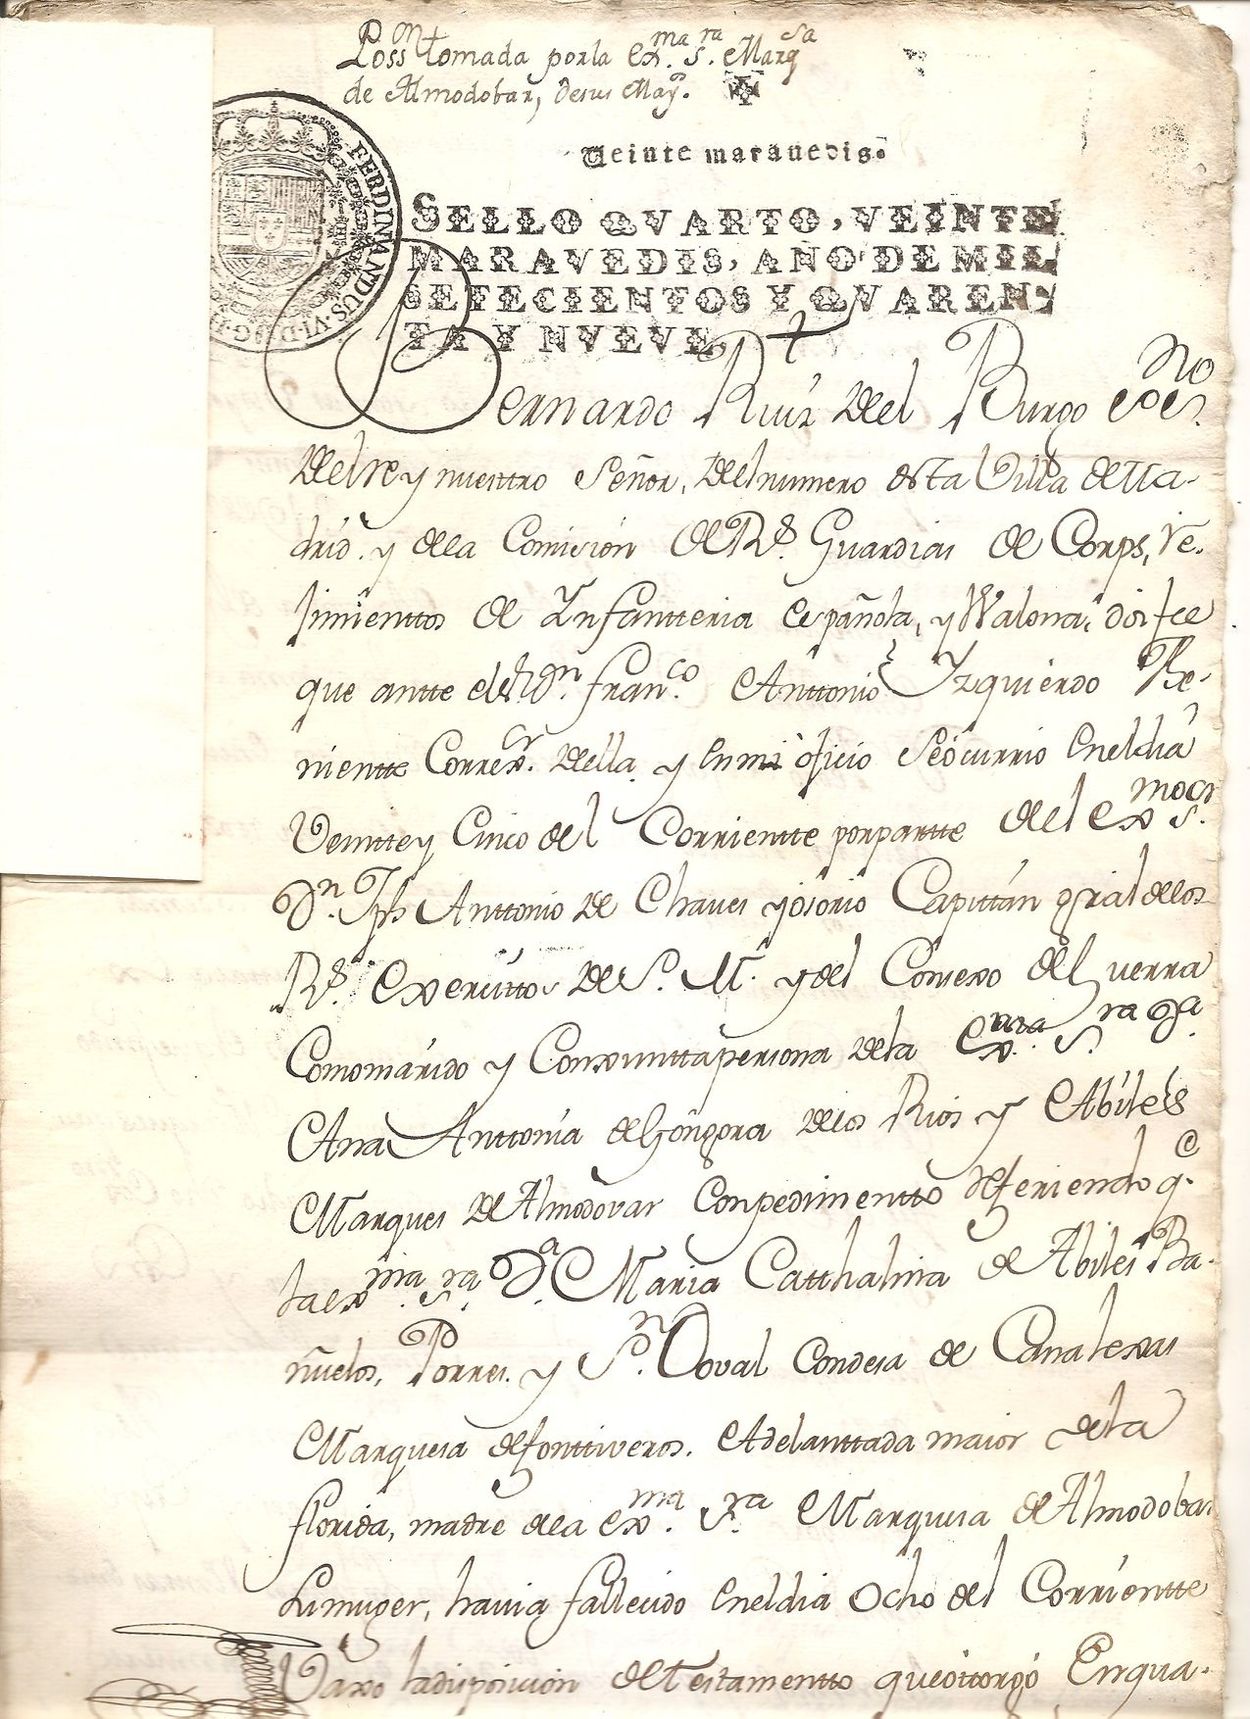 Poss.on tomada por la ex.ma s.ra Marq.sa
de Almodobar, de sus May.os
Veinte maravedis.
SELLO QVARTO, VEINTE
MARAVEDIS, AÑO DE MIL
SETECIENTOS Y QVAREN-
TA Y NVEVE.
FERDINANDUS·VI·D·G·
Bernardo Ruiz del Burgo ess.no
del rey nuestro Señor, del numero desta Villa de Ma-
drid, y de la Comision de R.s Guardias de Corps, re-
jimienttos de Ynfantteria española, y Walona, doi fee
que antte el s.r D.n Fran.co Anttonio Yzquierdo The-
nientte Correx.or della, y en mi oficio se ocurrio en el dia
Veintte y Cinco del Corrientte por partte del ex.mo s.or
D.n Jph Anttonio de Chaues y osorio Capittán gral de los
R.s exercittos de S. M. y del Consexo de Guerra
Como marido y Conxuntta persona de la Ex.ma S.ra D.a
Ana Anttonia de Gongora de los Rios y Abiles
Marques de Almodovar Con pedimentto refiriendo q.e
la ex.ma s.ra D.a Maria Catthalina de Abiles Ba-
ñuelos, Porres y S.n Doval Condesa de Canalexas
Marquesa de fonttiveros, Adelanttada maior de la
florida, madre de la ex.ma S.ra Marquesa de Almodobar
su muger, havia fallecido en el dia Ocho del Corrientte
Vaxo la disposicion del Testamentto que ottorgó En qua-